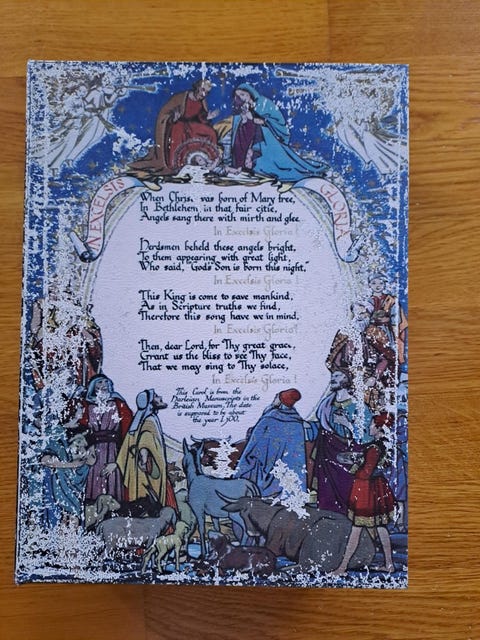 IN EXCELSIS GLORIA
When Chris, was born of Mary free,
In Bethlehem in that fair citie,
Angels sang there with mirth and glee
In Excelsis Gloria !
Herdsmen beheld these angels bright,
To them appearing with great light,
Who said, "God's Son is born this night,"
In Excelsis Gloria !
This King is come to save mankind,
As in Scripture truths we find,
Therefore this song have we in mind,
In Excelsis Gloria !
Then, dear Lord, for Thy great grace,
Grant us the bliss to see Thy face,
That we may sing to Thy solace,
In Excelsis Gloria !
This Carol is from the
Harleian Manuscripts in the
British Museum, The date
is supposed to be about
the year 1,500.